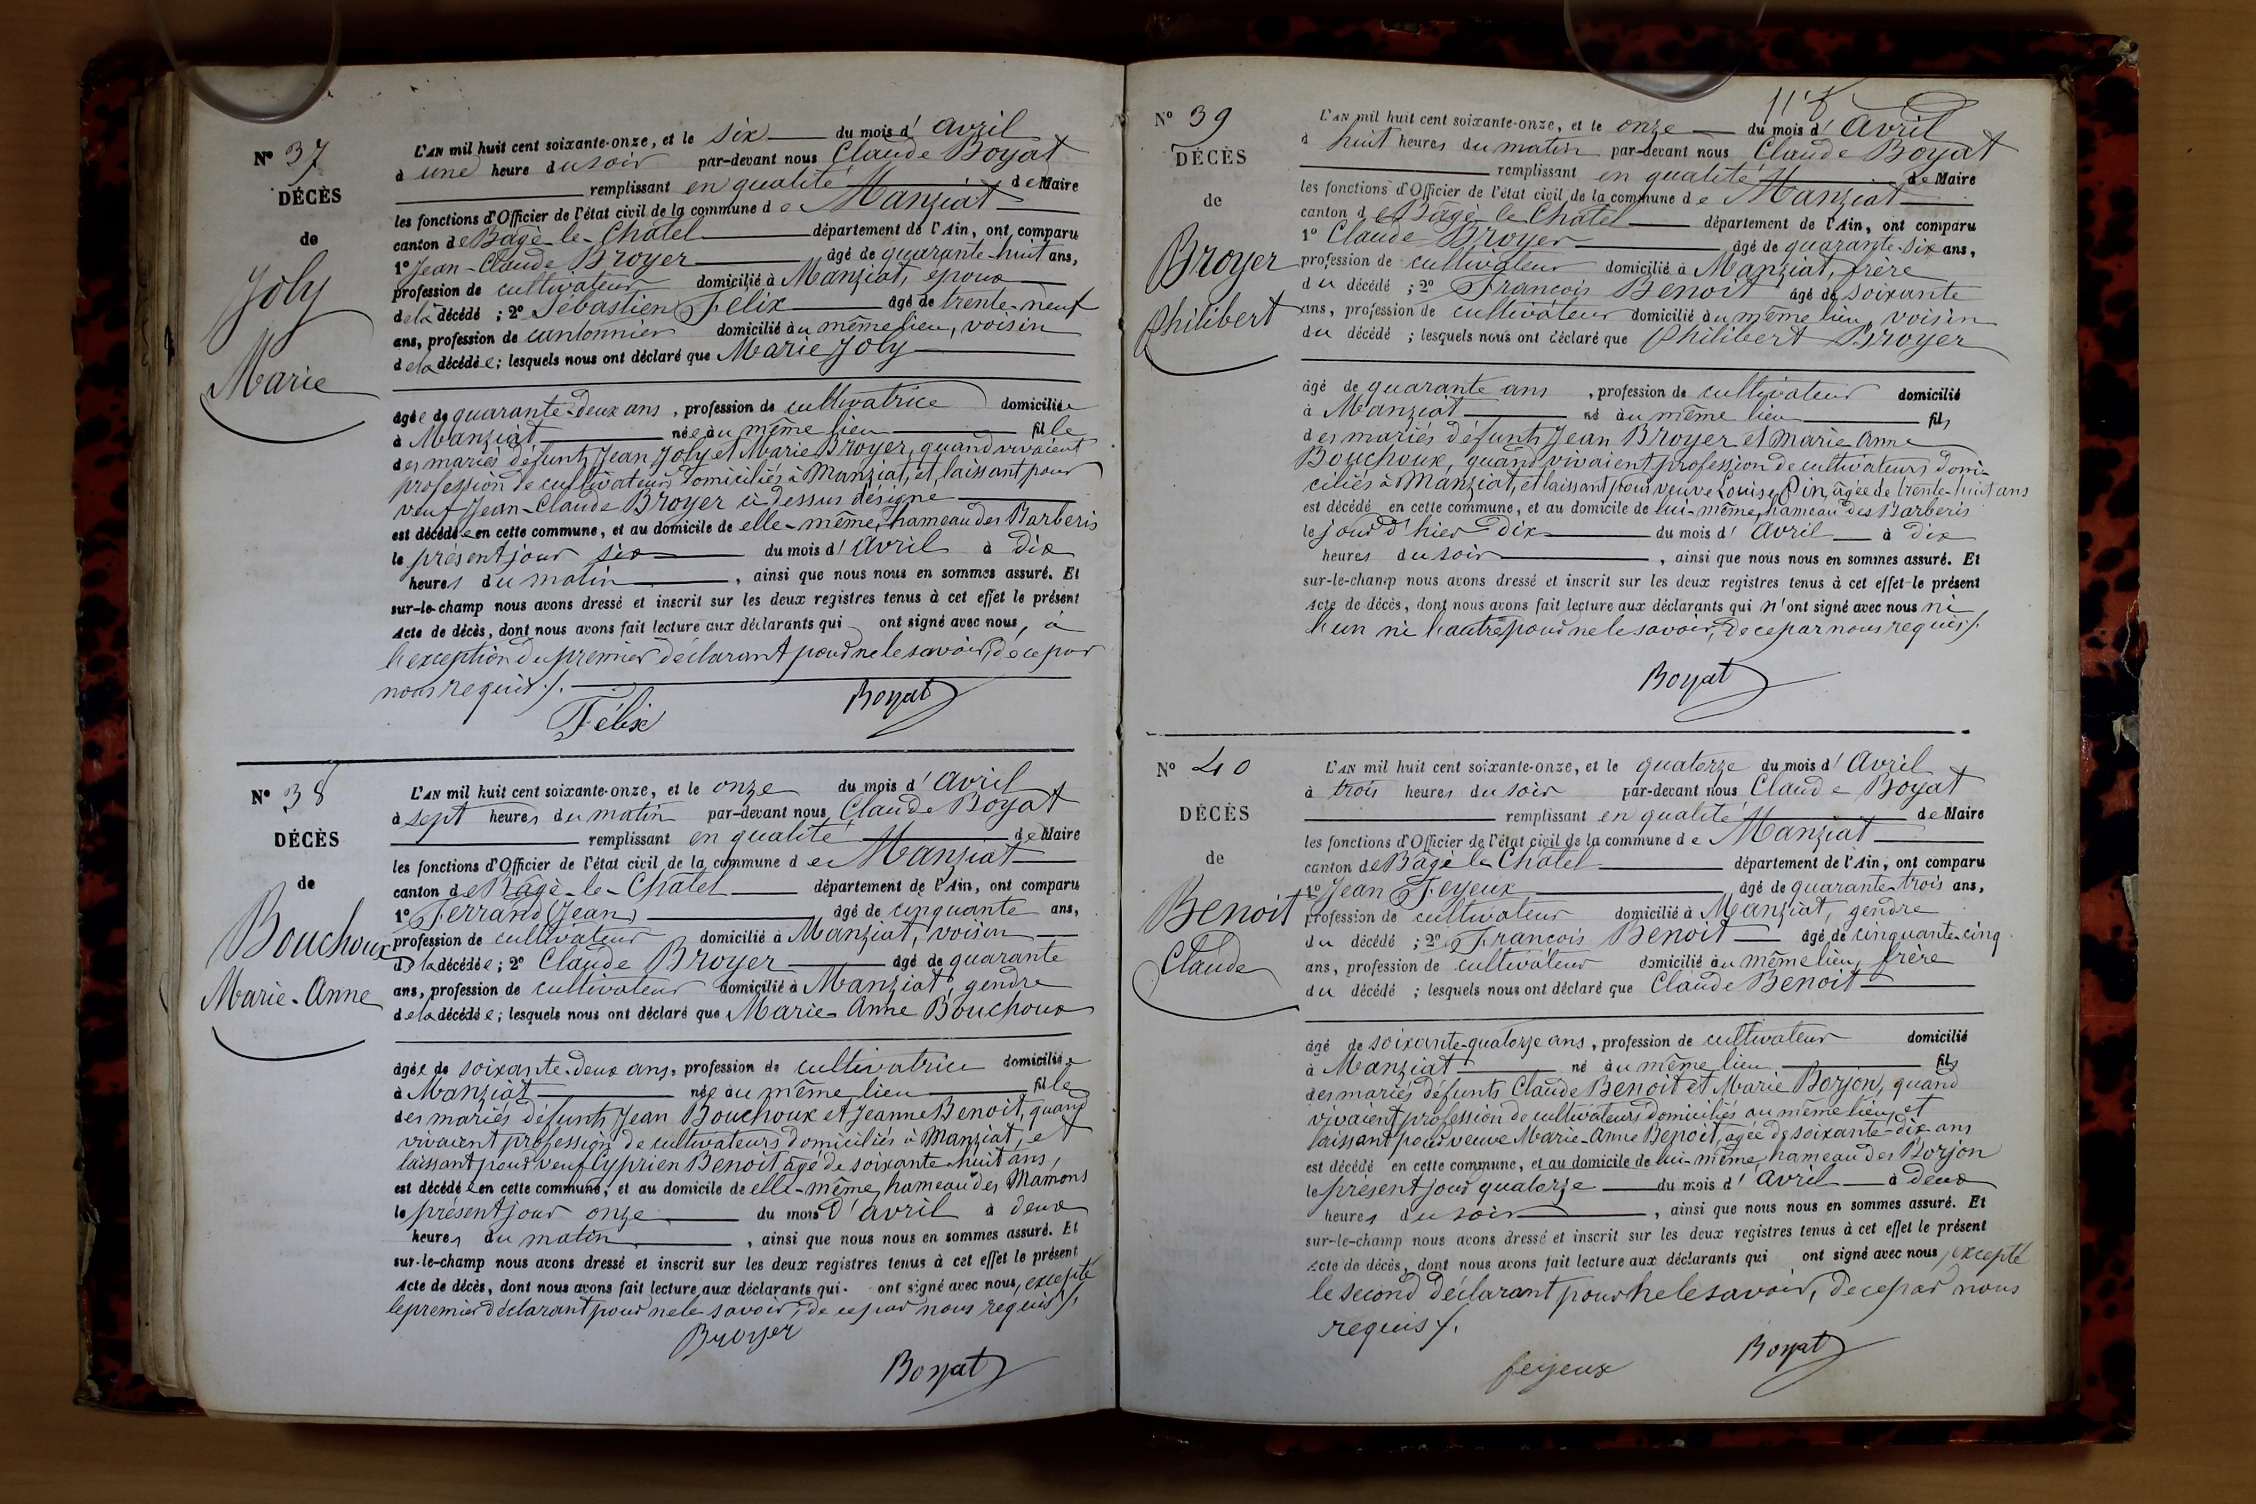 N° 37
DÉCÈS
de
Joly
Marie
L'AN mil huit cent soixante-onze, et le six du mois d'avril
à une heure du soir par-devant nous Claude Boyat
remplissant en qualité de Maire
les fonctions d'Officier de l'état civil de la commune de Manziat
canton de Bâgé-le-Châtel département de l'Ain, ont comparu
1° Jean-Claude Broyer âgé de quarante-huit ans,
profession de cultivateur domicilié à Manziat, époux
de la décédé ; 2° Sébastien Félix âgé de trente-neuf
ans, profession de cantonnier domicilié au même lieu, voisin
de la décédée ; lesquels nous ont déclaré que Marie Joly
âgée de quarante-deux ans, profession de cultivatrice domiciliée
à Manziat née au même lieu fille
des mariés défunts Jean Joly et Marie Broyer, quand vivaient
profession de cultivateurs domiciliés à Manziat, et laissant pour
veuf Jean-Claude Broyer ci-dessus désigné
est décédée en cette commune, et au domicile de elle-même, hameau des Barberis
le présent jour six du mois d'avril à dix
heures du matin, ainsi que nous nous en sommes assuré. Et
sur-le-champ nous avons dressé et inscrit sur les deux registres tenus à cet effet le présent
Acte de décès, dont nous avons fait lecture aux déclarants qui ont signé avec nous, à
l'exception du premier déclarant pour ne le savoir, de ce par
nous requis ./.
Félix Boyat
N° 38
DÉCÈS
de
Bouchoux
Marie-Anne
L'AN mil huit cent soixante-onze, et le onze du mois d'avril
à sept heures du matin par-devant nous Claude Boyat
remplissant en qualité de Maire
les fonctions d'Officier de l'état civil de la commune de Manziat
canton de Bâgé-le-Châtel département de l'Ain, ont comparu
1° Ferrand (Jean) âgé de cinquante ans,
profession de cultivateur domicilié à Manziat, voisin
de la décédée ; 2° Claude Broyer âgé de quarante
ans, profession de cultivateur domicilié à Manziat, gendre
de la décédée ; lesquels nous ont déclaré que Marie-Anne Bouchoux
âgée de soixante-deux ans, profession de cultivatrice domiciliée
à Manziat née au même lieu fille
des mariés défunts Jean Bouchoux et Jeanne Benoit, quand
vivaient profession de cultivateurs domiciliés à Manziat, et
laissant pour veuf Cyprien Benoit, âgé de soixante-huit ans,
est décédée en cette commune, et au domicile de elle-même, hameau des Mamons
le présent jour onze du mois d'avril à deux
heures du matin, ainsi que nous nous en sommes assuré. Et
sur-le-champ nous avons dressé et inscrit sur les deux registres tenus à cet effet le présent
Acte de décès, dont nous avons fait lecture aux déclarants qui ont signé avec nous, excepté
le premier déclarant pour ne le savoir, de ce par nous requis ./.
Broyer
Boyat
N° 39
DÉCÈS
de
Broyer
Philibert
L'AN mil huit cent soixante-onze, et le onze du mois d'avril
à huit heures du matin par-devant nous Claude Boyat
remplissant en qualité de Maire
les fonctions d'Officier de l'état civil de la commune de Manziat
canton de Bâgé-le-Châtel département de l'Ain, ont comparu
1° Claude Broyer âgé de quarante-six ans,
profession de cultivateur domicilié à Manziat, frère
du décédé ; 2° François Benoit âgé de soixante
ans, profession de cultivateur domicilié au même lieu, voisin
du décédé ; lesquels nous ont déclaré que Philibert Broyer
âgé de quarante ans, profession de cultivateur domicilié
à Manziat né au même lieu fils
des mariés défunts Jean Broyer et Marie Anne
Bouchoux, quand vivaient profession de cultivateurs domi-
ciliés à Manziat, et laissant pour veuve Louise Pin, âgée de trente-huit ans
est décédé en cette commune, et au domicile de lui-même, hameau des Barberis
le jour d'hier dix du mois d'avril à dix
heures du soir, ainsi que nous nous en sommes assuré. Et
sur-le-champ nous avons dressé et inscrit sur les deux registres tenus à cet effet le présent
Acte de décès, dont nous avons fait lecture aux déclarants qui n'ont signé avec nous ni
l'un ni l'autre pour ne le savoir, de ce par nous requis ./.
Boyat
N° 40
DÉCÈS
de
Benoit
Claude
L'AN mil huit cent soixante-onze, et le quatorze du mois d'avril
à trois heures du soir par-devant nous Claude Boyat
remplissant en qualité de Maire
les fonctions d'Officier de l'état civil de la commune de Manziat
canton de Bâgé-le-Châtel département de l'Ain, ont comparu
1° Jean Feyeux âgé de quarante-trois ans,
profession de cultivateur domicilié à Manziat, gendre
du décédé ; 2° François Benoit âgé de cinquante-cinq
ans, profession de cultivateur domicilié au même lieu, frère
du décédé ; lesquels nous ont déclaré que Claude Benoit
âgé de soixante-quatorze ans, profession de cultivateur domicilié
à Manziat né au même lieu fils
des mariés défunts Claude Benoit et Marie Borjon, quand
vivaient profession de cultivateurs domiciliés au même lieu, et
laissant pour veuve Marie-Anne Benoit, âgée de soixante-dix ans
est décédé en cette commune, et au domicile de lui-même, hameau des Borjon
le présent jour quatorze du mois d'avril à deux
heures du soir, ainsi que nous nous en sommes assuré. Et
sur-le-champ nous avons dressé et inscrit sur les deux registres tenus à cet effet le présent
Acte de décès, dont nous avons fait lecture aux déclarants qui ont signé avec nous, excepté
le second déclarant pour ne le savoir, de ce par nous
requis ./.
feyeux Boyat